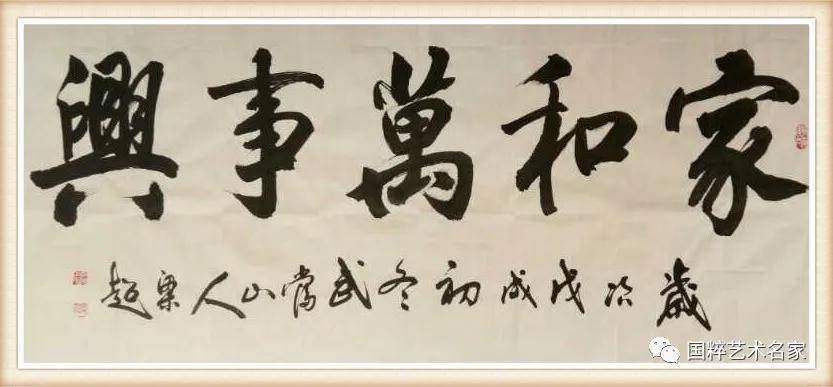 家和萬事興
歲次戊戌初冬武當山人栗超
国粹艺术名家